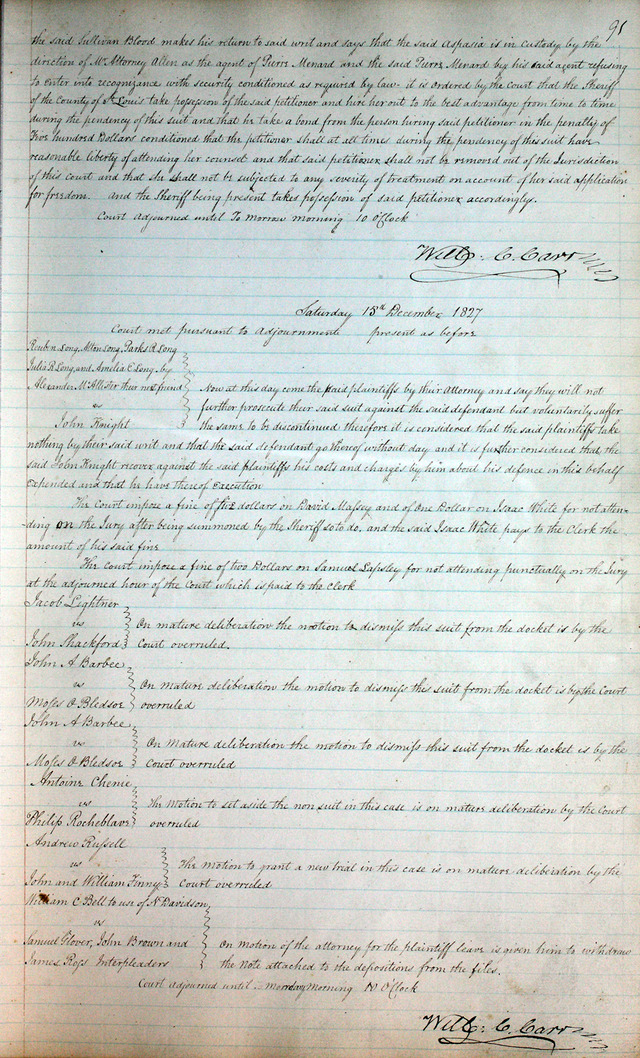 95
the said Sullivan Blood makes his return to said writ and says that the said Aspasia is in custody by the
direction of Mr Attorney Allen as the agent of Pierre Menard and the said Pierre Menard by his said agent refusing
to enter into recognizance with security conditioned as required by law - it is ordered by the Court that the Sheriff
of the County of St Louis take possession of the said petitioner and hire her out to the best advantage from time to time
during the pendency of this suit and that he take a bond from the person hiring said petitioner in the penalty of
Five hundred Dollars conditioned that the petitioner shall at all times during the pendency of this suit have
reasonable liberty of attending her counsel and that said petitioner shall not be removed out of the Jurisdiction
of this court and that she shall not be subjected to any severity of treatment on account of her said application
for freedom. and the Sheriff being present takes possession of said petitioner accordingly.
Court adjourned until To Morrow morning 10 OClock
Will: C. Carr
Saturday 15th December 1827
Court met pursuant to adjournment present as before
Reuben Long, Alton Long, Parks R Long
Julia R Long, and Amelia C Long by
Alexander McAllister their next friend
vs
John Knight
Now at this day come the said plaintiffs by their Attorney and say they will not
further prosecute their said suit against the said defendant but voluntarily suffer
the same to be discontinued therefore it is considered that the said plaintiffs take
nothing by their said writ and that the said defendant go thereof without day and it is further considered that the
said John Knight recover against the said plaintiffs his costs and charges by him about his defence in this behalf
expended and that he have thereof execution
The Court impose a fine of five dollars on David Massey and of One Dollar on Isaac White for not atten-
-ding on the Jury after being summoned by the Sheriff so to do, and the said Isaac White pays to the Clerk the
amount of his said fine
The court impose a fine of two Dollars on Samuel Lapsley for not attending punctually on the Jury
at the adjourned hour of the Court which is paid to the Clerk
Jacob Lightner
vs
John Shackford
On mature deliberation the motion to dismiss this suit from the docket is by the
Court overruled.
John A Barbee
vs
Moses O Bledsoe
On mature deliberation the motion to dismiss this suit from the docket is by the Court
overruled
John A Barbee
vs
Moses O Bledsoe
On mature deliberation the motion to dismiss this suit from the docket is by the
Court overruled
Antoine Chenie
vs
Philip Rocheblave
The Motion to set aside the non suit in this case is on mature deliberation by the Court
overruled
Andrew Russell
vs
John and William Finney
The Motion to grant a new trial in this case is on mature deliberation by the
Court overruled
William C Bell to use of N Davidson
vs
Samuel Glover, John Brown and
James Ross Interpleaders
On motion of the attorney for the plaintiff leave is given him to withdraw
the Note attached to the depositions from the files.
Court adjourned until Monday Morning 10 OClock
Will: C. Carr